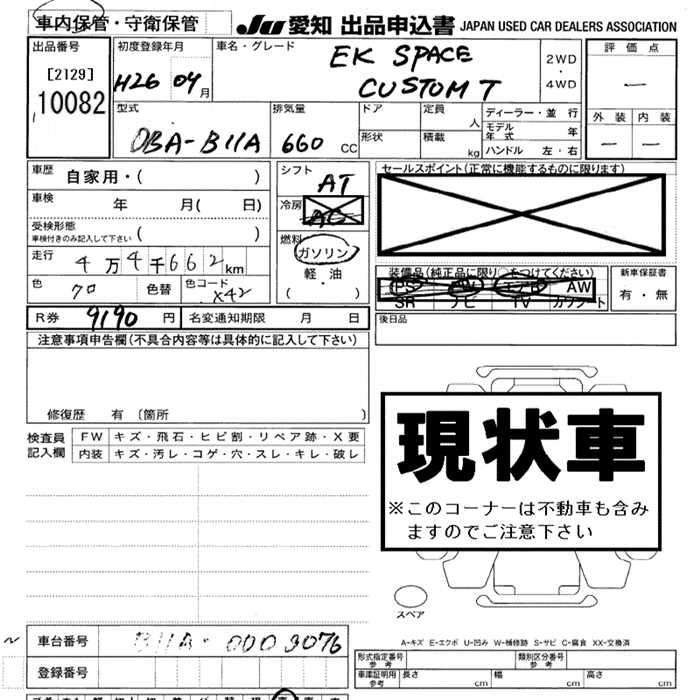 車内保管・守衛保管
JU 愛知 出品申込書 JAPAN USED CAR DEALERS ASSOCIATION
出品番号
[2129]
10082
初度登録年月
H26 04月
車名・グレード
EK SPACE
CUSTOM T
2WD
・
4WD
評価点
ー
外装 内装
ー ー
型式
DBA-B11A
排気量
660 CC
ドア
形状
定員
人
積載
kg
ディーラー・並行
モデル年式 年
ハンドル 左・右
車歴 自家用・( )
車検 年 月( 日)
受検形態
車検付きのみ記入して下さい ( )
走行 4万4千662km
色 クロ 色替 色コード X42
シフト
AT
冷房
AC
燃料
ガソリン
軽・油
( ・ )
セールスポイント(正常に機能するものに限ります)
装備品(純正品に限り○をつけてください)
PS PW エアB AW
SR ナビ TV カワシート
新車保証書
有・無
後日品
R券 9190 円 名変通知期限 月 日
注意事項申告欄(不具合内容等は具体的に記入して下さい)
修復歴 有 〔箇所 〕
検査員
記入欄
FW キズ・飛石・ヒビ割・リペア跡・X要
内装 キズ・汚レ・コゲ・穴・スレ・キレ・破レ
現状車
※このコーナーは不動車も含み
ますのでご注意下さい
スペア
A-キズ E-エクボ U-凹み W-補修跡 S-サビ C-腐食 XX-交換済
車台番号 B11A-0003076
登録番号
型式指定番号
参考
類別区分番号
参考
車庫証明用
参考
長さ cm 幅 cm 高さ cm